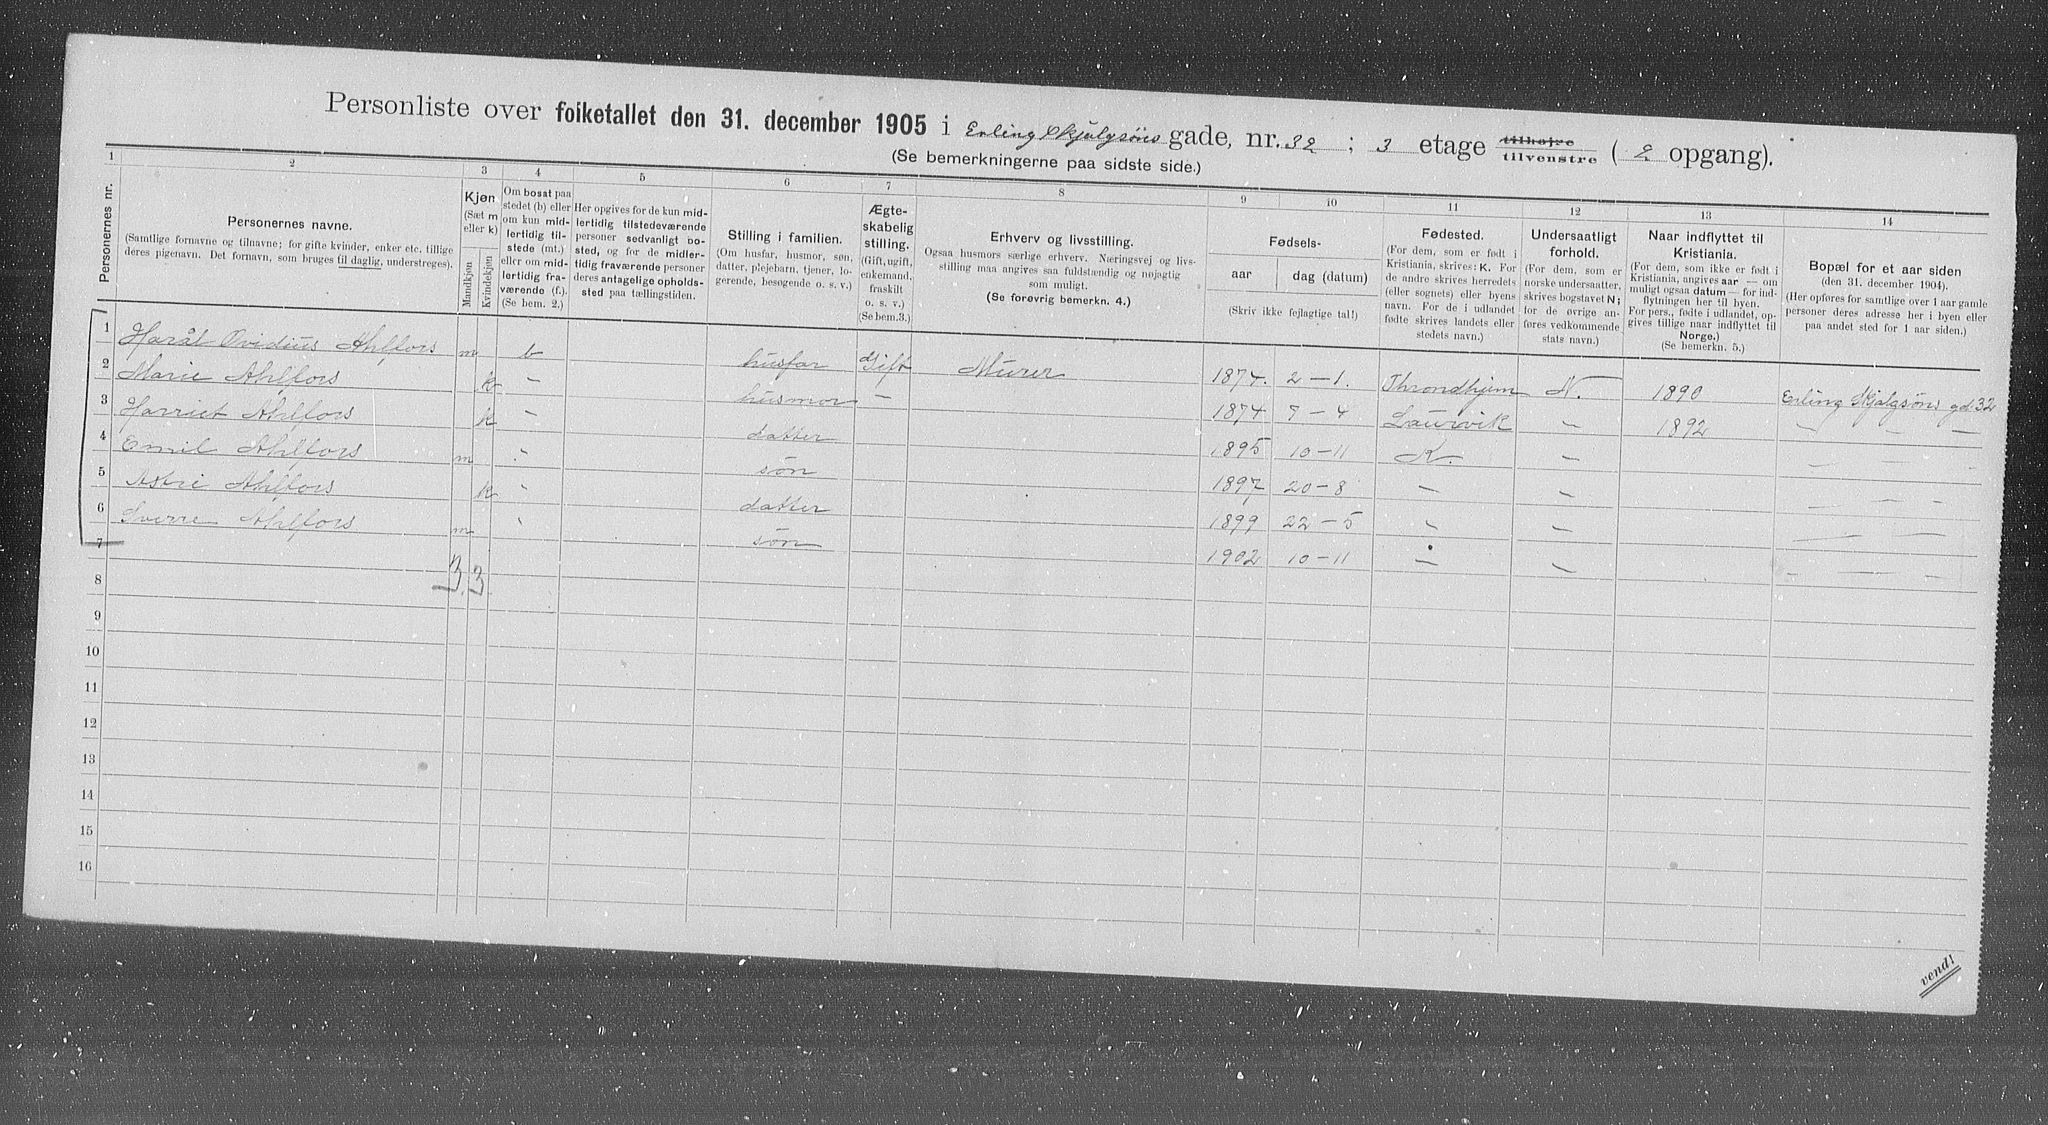 Personliste over folketallet den 31. december 1905 i Erling Skjalgsöns gade, nr. 32 ; 3 etage tilhøjre tilvenstre ( 2 opgang).
(Se bemerkningerne paa sidste side.)
1 2 3 4 5 6 7 8 9 10 11 12 13 14
Personernes nr.
Personernes navne.
(Samtlige fornavne og tilnavne; for gifte kvinder, enker etc. tillige
deres pigenavn. Det fornavn, som bruges til daglig, understreges).
Kjøn
(Sæt m
eller k)
Mandkjøn
Kvindekjøn
Om bosat paa
stedet (b) eller
om kun mid-
lertidig til-
stede (mt.)
eller om mid-
lertidig fra-
værende (f.).
(Se bem. 2.)
Her opgives for de kun mid-
lertidig tilstedeværende
personer sedvanligt bo-
sted, og for de midler-
tidig fraværende personer
deres antagelige opholds-
sted paa tællingstiden.
Stilling i familien.
(Om husfar, husmor, søn,
datter, plejebarn, tjener, lo-
gerende, besøgende o. s. v.)
Ægte-
skabelig
stilling.
(Gift, ugift,
enkemand,
fraskilt
o. s. v.)
(Se bem.3.)
Erhverv og livsstilling.
Ogsaa husmors særlige erhverv. Næringsvej og livs-
stilling maa angives saa fuldstændig og nøjagtig
som muligt.
(Se forøvrig bemerkn. 4.)
Fødsels-
aar dag (datum)
(Skriv ikke fejlagtige tal!)
Fødested.
(For dem, som er født i
Kristiania, skrives: K. For
de andre skrives herredets
(eller sognets) eller byens
navn. For de i udlandet
fødte skrives landets eller
stedets navn.)
Undersaatligt
forhold.
(For dem, som er
norske undersaatter,
skrives bogstavet N;
for de øvrige an-
føres vedkommende
stats navn.)
Naar indflyttet til
Kristiania.
(For dem, som ikke er født i
Kristiania, angives aar — om
muligt ogsaa datum — for ind-
flytningen her til byen.
For pers., fødte i udlandet, op-
gives tillige naar indflyttet til
Norge.)
(Se bemerkn. 5.)
Bopæl for et aar siden
(den 31. december 1904).
(Her opføres for samtlige over 1 aar gamle
personer deres adresse her i byen eller
paa andet sted for 1 aar siden.)
1 Harål Ovidius Ahlfors m b husfar Gift Murer 1874. 2 – 1. Throndhjem N. 1890 Erling Skjalgsöns gd 32
2 Marie Ahlfors k – husmor – 1874 7 – 4 Laurvik – 1892 – – –
3 Harriet Ahlfors k – datter 1895 10 – 11 K. – – – –
4 Emil Ahlfors m – søn 1897 20 – 8 – – – –
5 Astri Ahlfors k – datter 1899 22 – 5 – – – – –
6 Sverre Ahlfors m – søn 1902 10 – 11 – – – – –
7
3 3
8
9
10
11
12
13
14
15
16
vend!